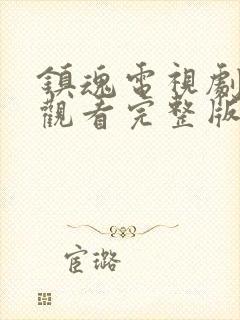 鎮魂電視劇
觀看完整版
宦璐